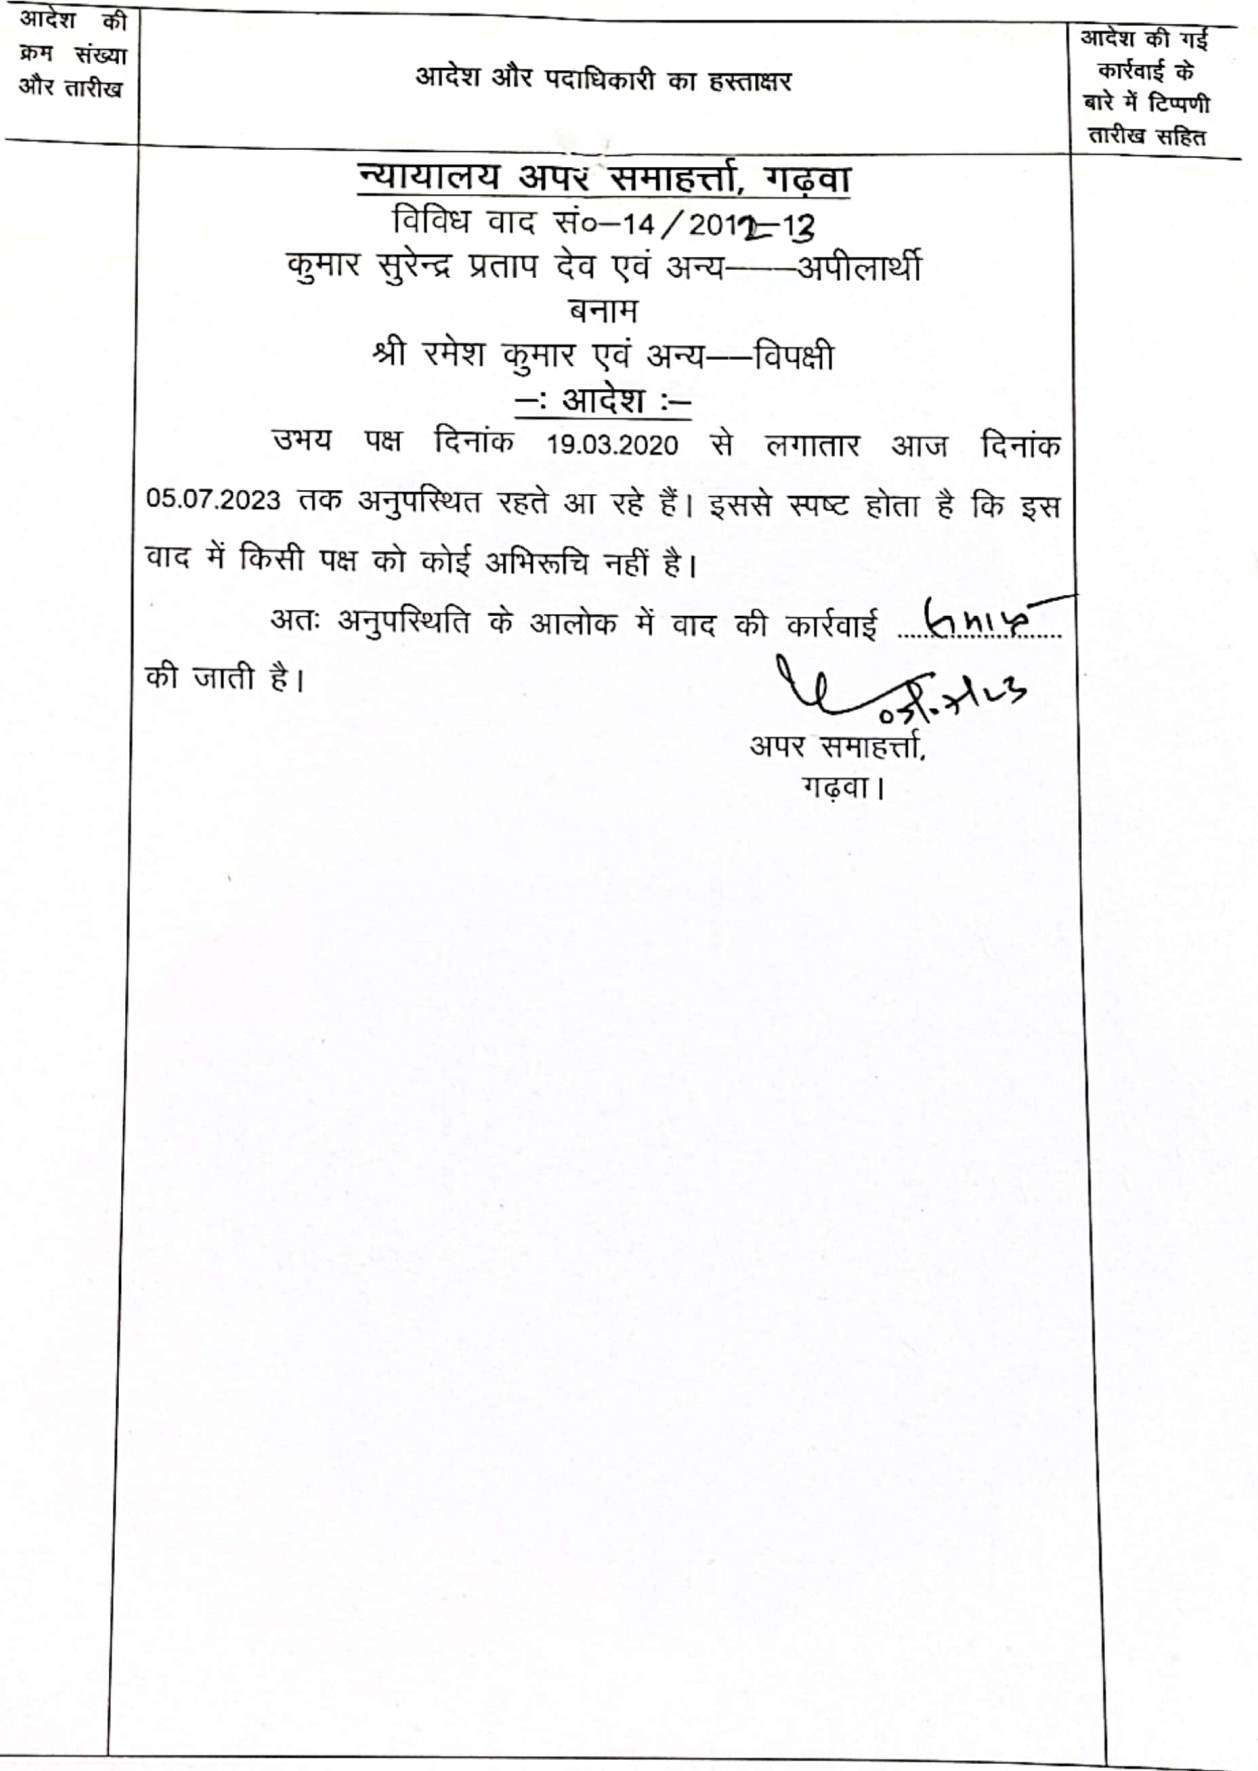 आदेश की
क्रम संख्या
और तारीख
आदेश और पदाधिकारी का हस्ताक्षर
आदेश की गई
कार्रवाई के
बारे में टिप्पणी
तारीख सहित
न्यायालय अपर समाहर्त्ता, गढ़वा
विविध वाद सं०–14/2012–13
कुमार सुरेन्द्र प्रताप देव एवं अन्य–––अपीलार्थी
बनाम
श्री रमेश कुमार एवं अन्य––विपक्षी
–: आदेश :–
उभय पक्ष दिनांक 19.03.2020 से लगातार आज दिनांक
05.07.2023 तक अनुपस्थित रहते आ रहे हैं। इससे स्पष्ट होता है कि इस
वाद में किसी पक्ष को कोई अभिरूचि नहीं है।
अतः अनुपस्थिति के आलोक में वाद की कार्रवाई समाप्त
की जाती है।
अपर समाहर्त्ता,
गढ़वा।